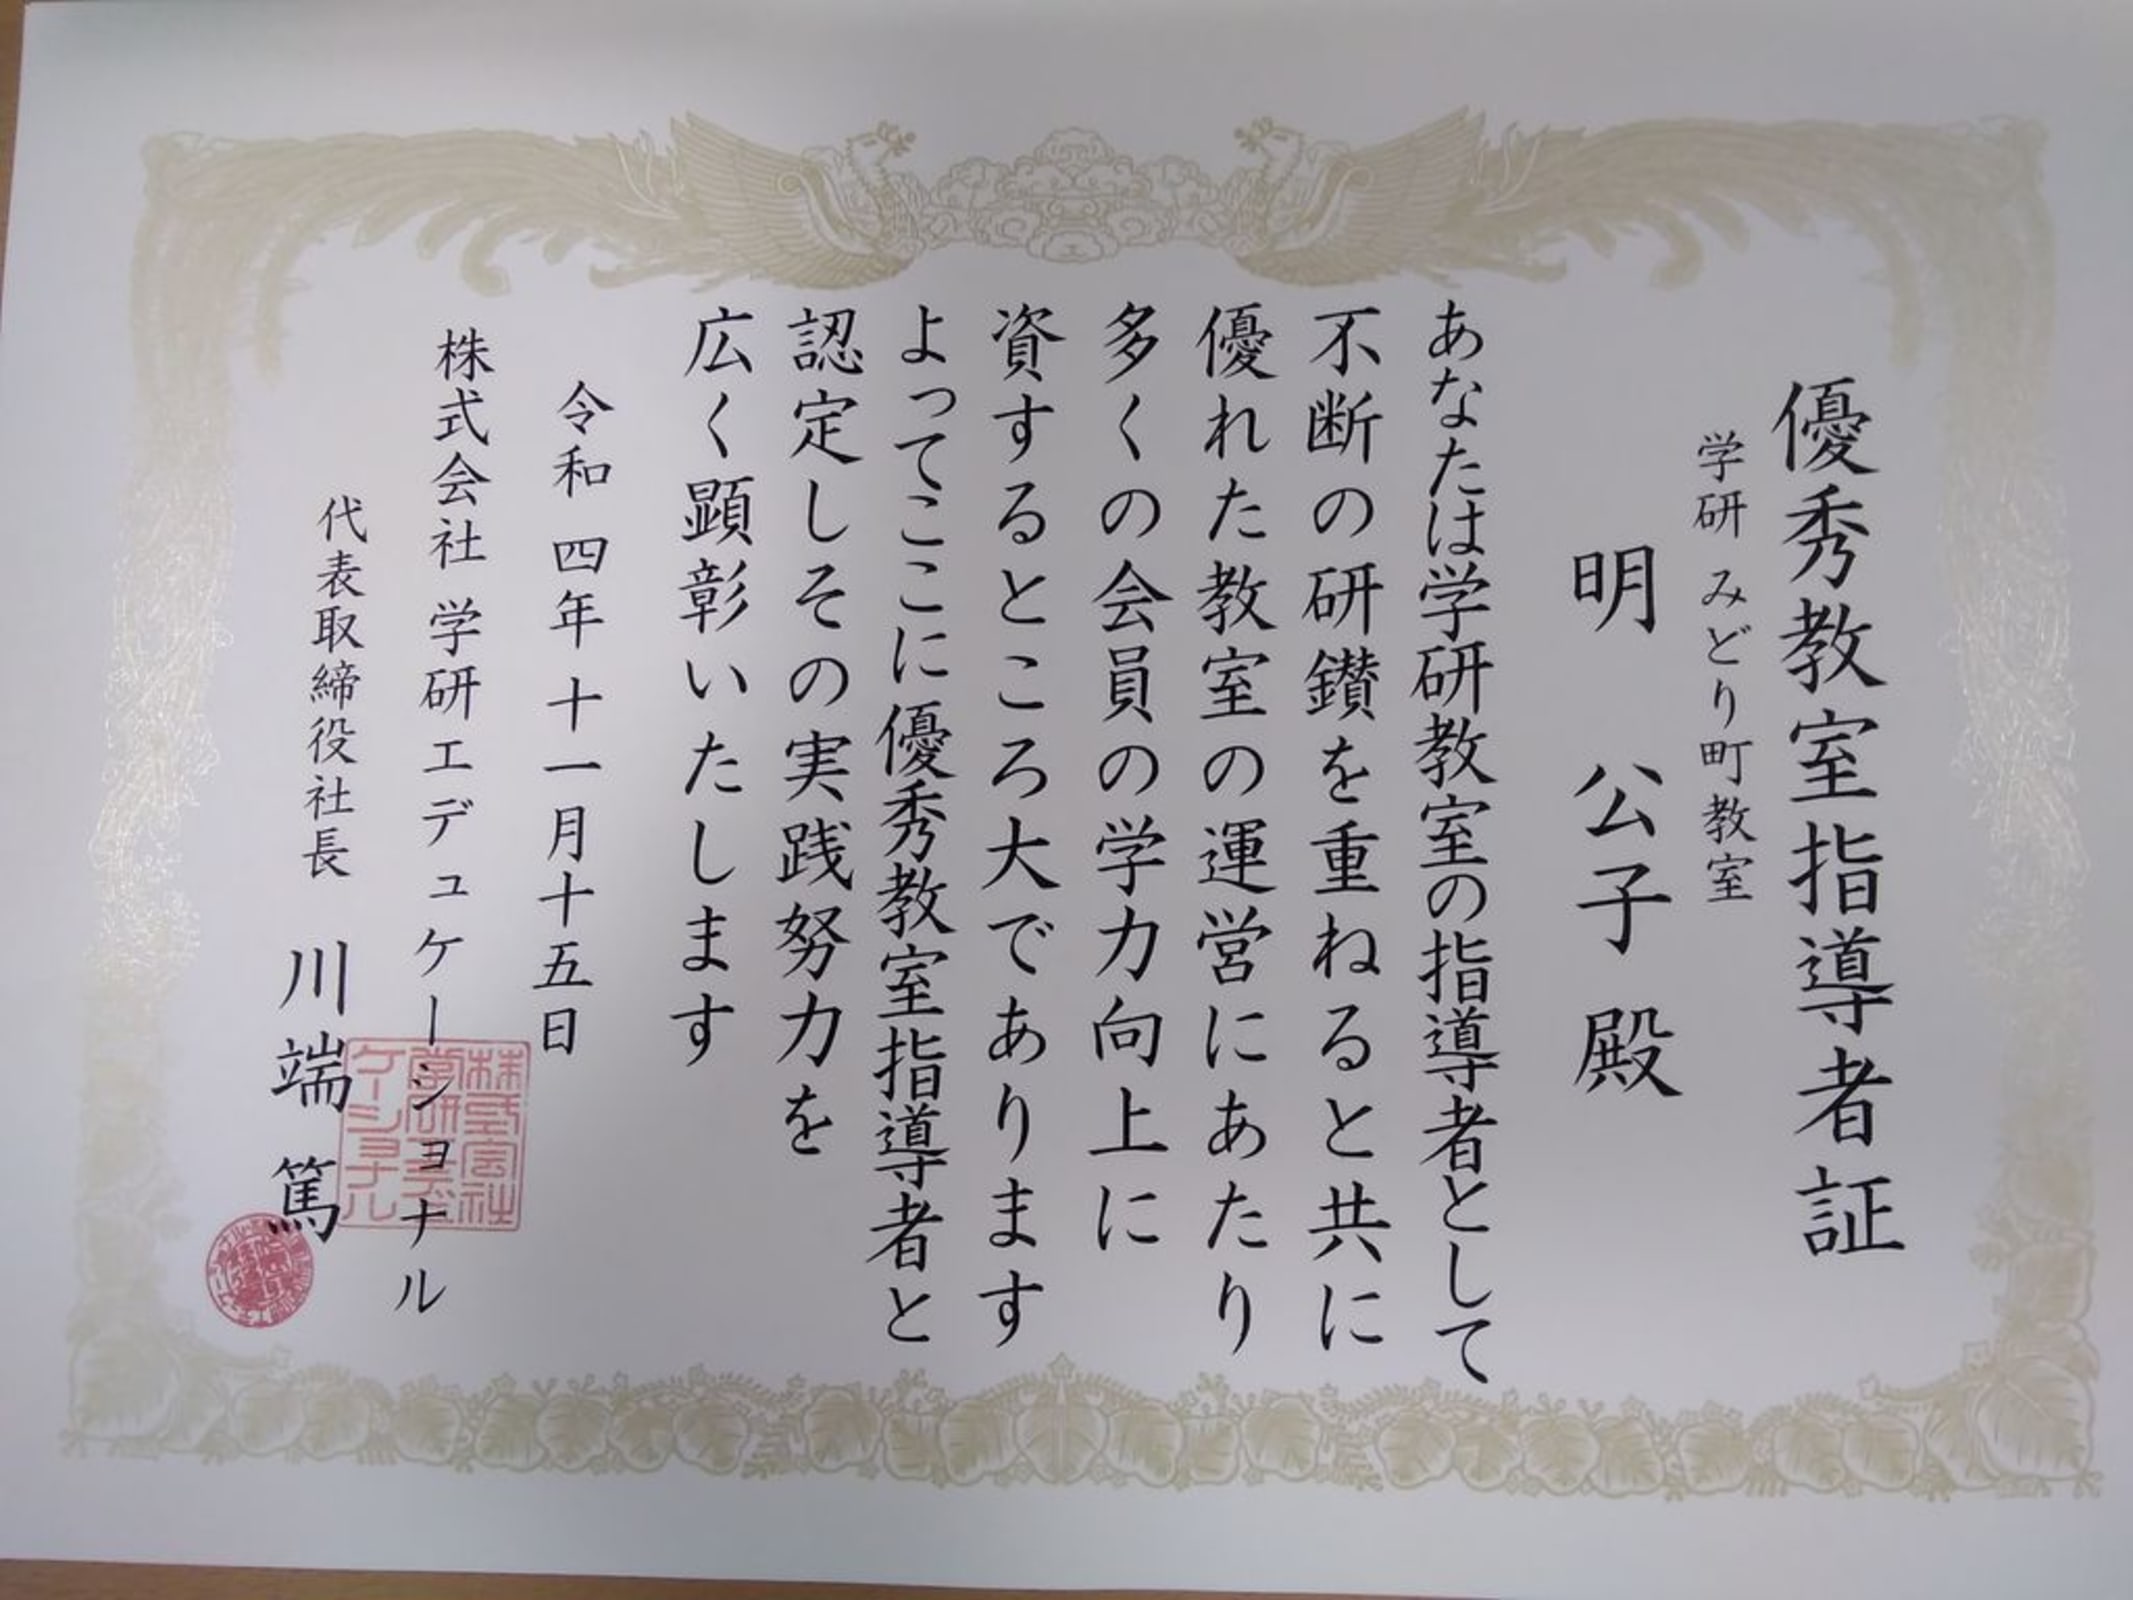 優秀教室指導者証
学研 みどり町教室
明 公子 殿
あなたは学研教室の指導者として
不断の研鑚を重ねると共に
優れた教室の運営にあたり
多くの会員の学力向上に
資するところ大であります
よってここに優秀教室指導者と
認定しその実践努力を
広く顕彰いたします
令和四年十一月十五日
株式会社 学研エデュケーショナル
代表取締役社長 川端 篤
株式会社
学研エデュ
ケーショナル